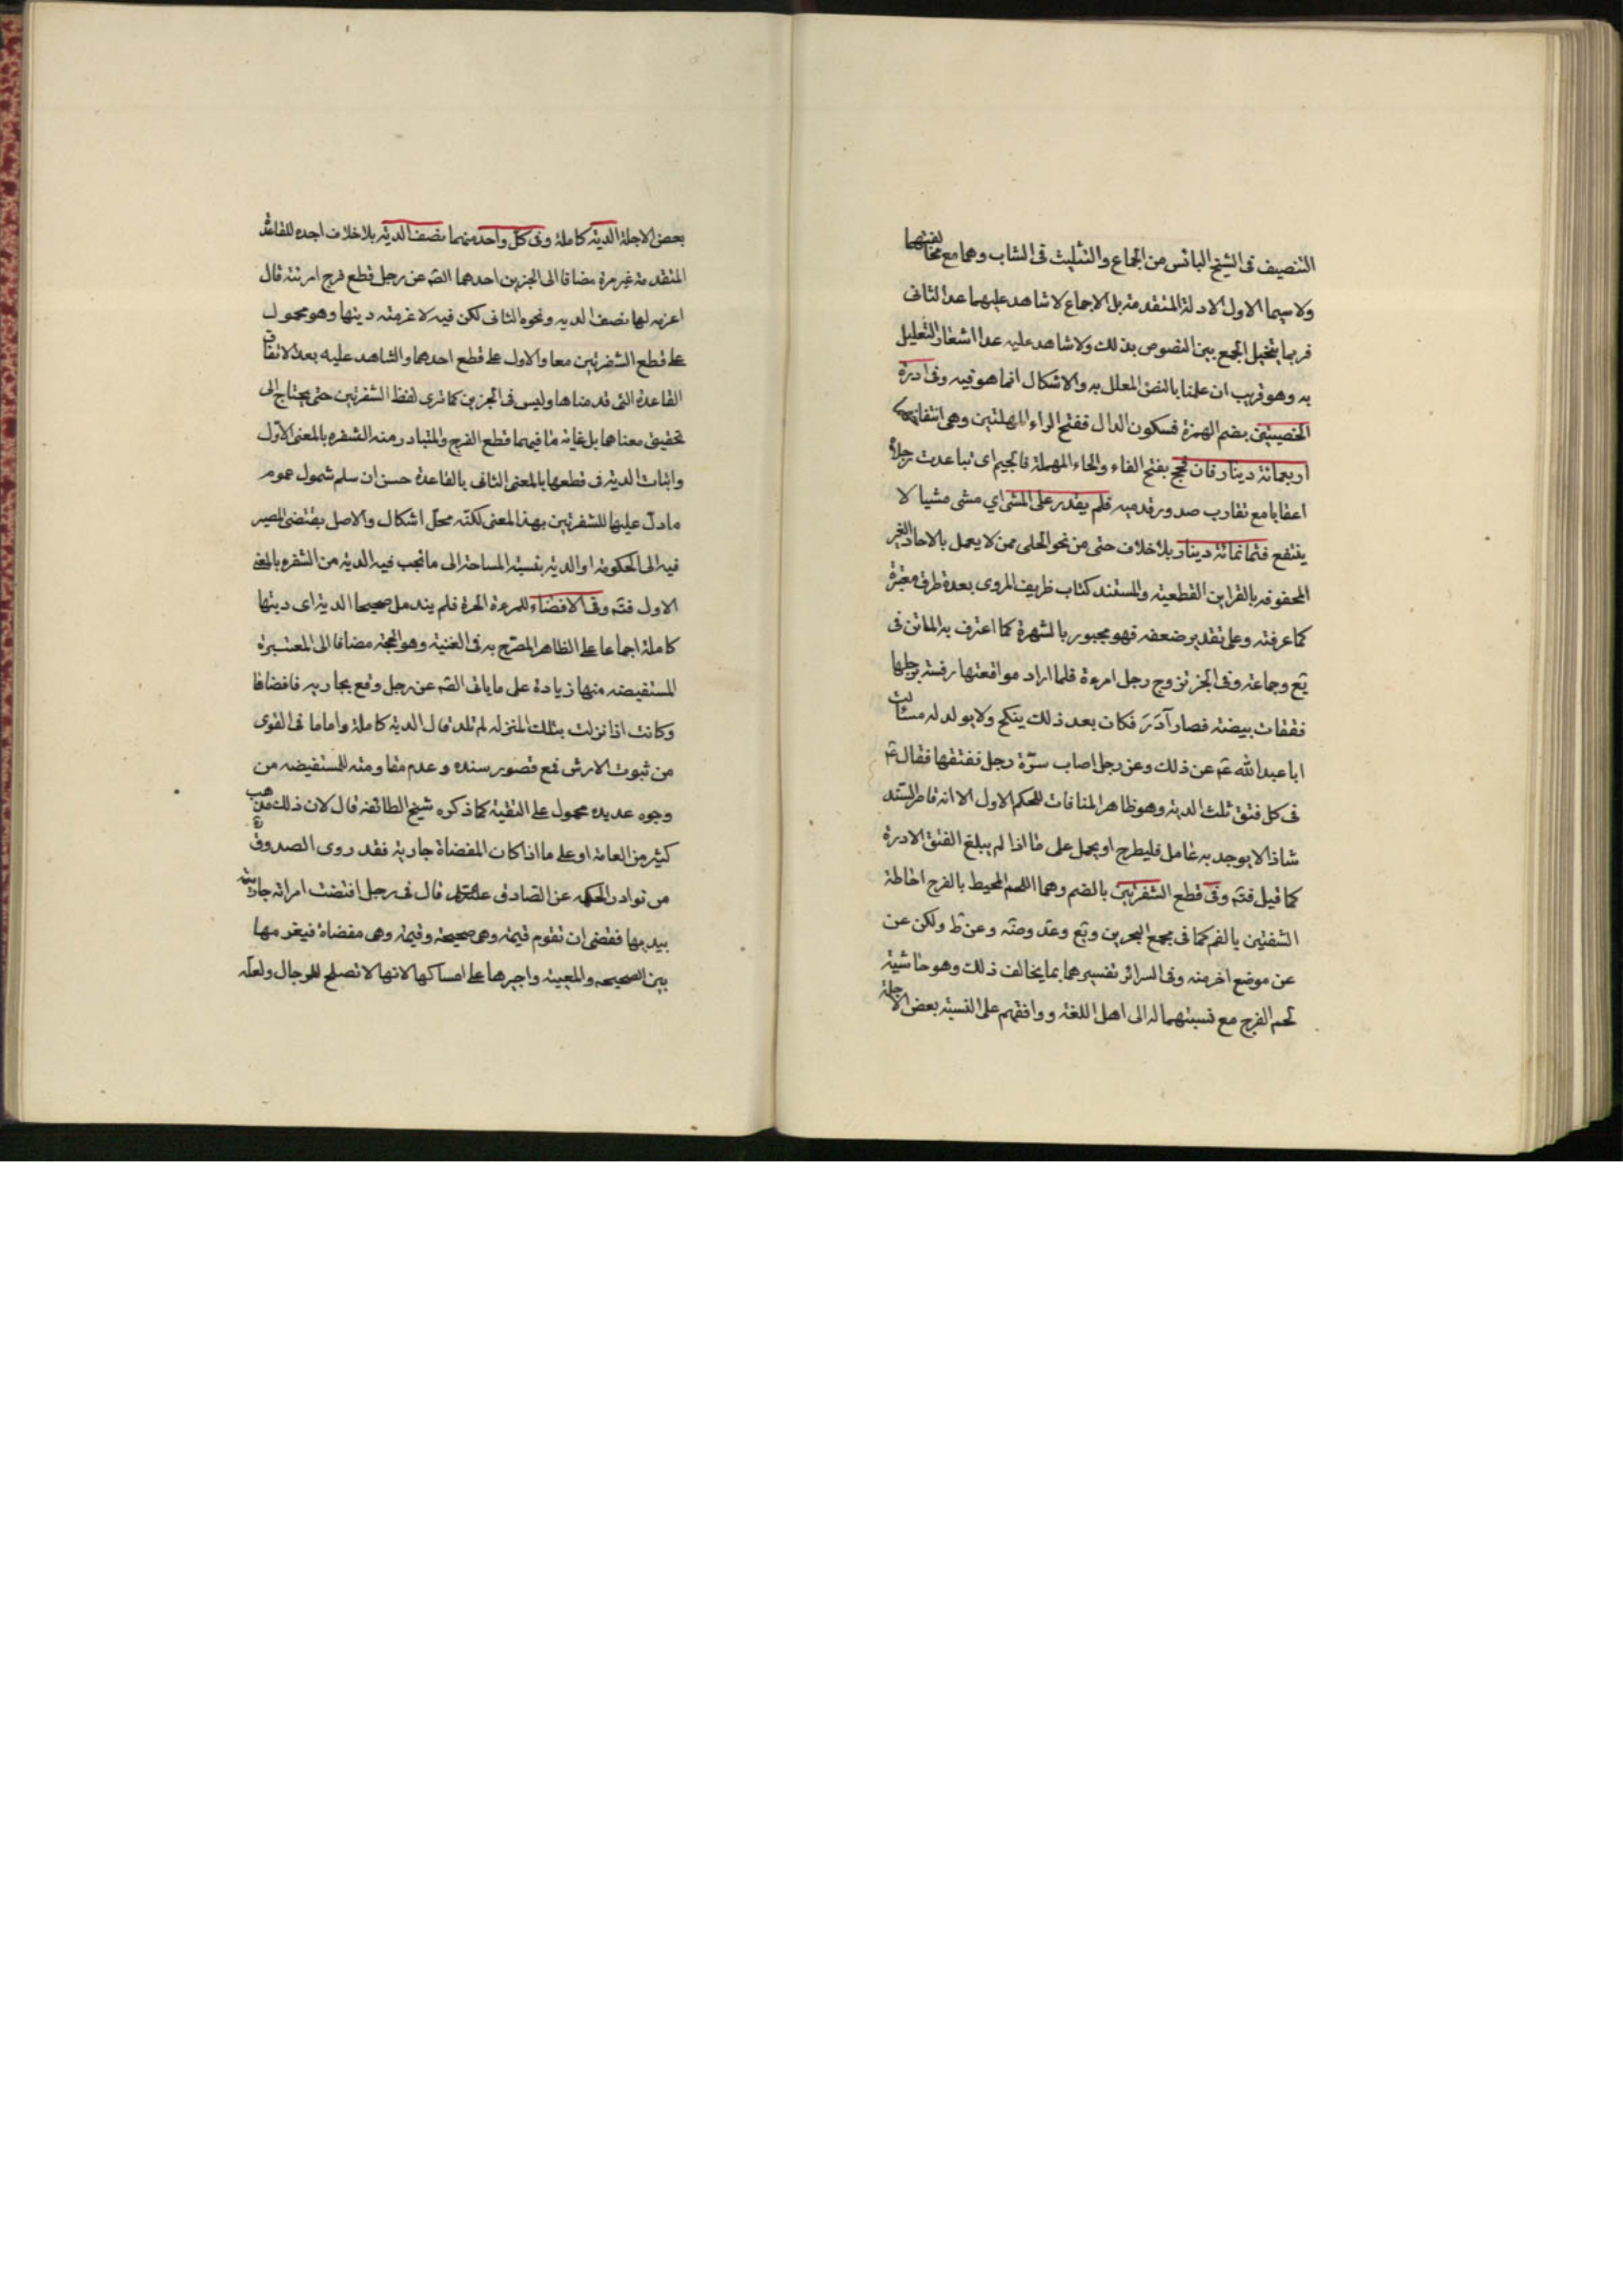 التنصيف فى الشيخ اليائس من الجماع والتثليث فى الشاب وهما مع مخالفتهما
ولا سيما الاول الادلة المتقدمة بل الاجماع لا شاهد عليهما عدا الثانى
فربما يتخيل الجمع بين النصوص بذلك ولا شاهد عليه عدا اشعار التعليل
به وهو قريب ان علمنا بالنص المعلل به والاشكال انما هو فيه وفى ادرة
الخصيتين بضم الهمزة فسكون الدال ففتح الراء المهملتين وهى انتفاخهما
اربعمائة دينار فان فحج بفتح الفاء والحاء المهملة فالجيم اى تباعدت رجلاه
اعقابا مع تقارب صدور قدميه فلم يقدر على المشى اي مشى مشيا لا
ينتفع فثمانمائة دينار بلا خلاف حتى من نحو الحلى ممن لا يعمل بالاحاد الغير
المحفوفه بالقراين القطعية والمستند كتاب ظريف المروى بعدة طرق معتبرة
كما عرفته وعلى تقدير ضعفه فهو مجبور بالشهرة كما اعترف به الماتن فى
يع وجماعة وفى الخبر تزوج رجل امرءة فلما اراد مواقعتها رفسته برجلها
ففقات بيضته فصار آدَرَ فكان بعد ذلك ينكح ولا يولد له مسئالت
ابا عبد الله عم عن ذلك وعن رجل اصاب سرّة رجل ففتقها فقال عم
فى كل فتق ثلث الدية وهو ظاهر المنافات للحكم الاول الا انه قاصر السند
شاذ لا يوجد به عامل فليطرح او يحمل على ما اذا لم يبلغ الفتق الادرة
كما قيل فتم وفى قطع الشفرتين بالضم وهما اللحم المحيط بالفرج احاطة
الشفتين بالفم كما فى مجمع البحرين ويع وعد وضه وعن ط ولكن عن
عن موضع اخر منه وفى السرائر تفسيرهما بما يخالف ذلك وهو حاشية
لحم الفرج مع نسبتهما له الى اهل اللغة ووافقهم على النسبة بعض الاجلة
بعض الاجلة الدية كاملة وفى كل واحد منهما نصف الدية بلا خلاف اجده للقاعدة
المتقدمة غير مرة مضافا الى الخبرين احدهما الصّه عن رجل قطع فرج امرئته قال
اغرمه لها نصف الديه ونحوه الثانى لكن فيه لاغرمنه ديتها وهو محمول
على قطع الشفرتين معا والاول على قطع احدهما والشاهد عليه بعد الاتفاق
القاعدة التى قدمناها وليس فى الخبرين كما ترى لفظ الشفرتين حتى يحتاج الى
تحقيق معناهما بل غاية ما فيهما قطع الفرج والمتبادر منه الشفره بالمعنى الاول
واثبات الدية فى قطعها بالمعنى الثانى بالقاعدة حسن ان سلم شمول عموم
ما دلّ عليها للشفرتين بهذا المعنى لكنّه محلّ اشكال والاصل يقتضى المصير
فيه الى الحكومة او الدية بنسبة المساحة الى ما تجب فيه الدية من الشفره بالمعنى
الاول فتم وفى الافضاء للمرءة الحرة فلم يندمل صحيحا الدية اى ديتها
كاملة اجماعا على الظاهر المصرّح به فى الغنية وهو الحجة مضافا الى المعتبرة
المستفيضه منها زيادة على ما ياتى الصّه عن رجل وقع بجاريه فافضاها
وكانت اذا نزلت بتلك المنزله لم تلد قال الديه كاملة واما ما فى القوى
من ثبوت الارش فمع قصور سنده وعدم مقاومته للمستفيضه من
وجوه عديده محمول على التقية كما ذكره شيخ الطائفه قال لان ذلك مذهب
كثير من العامة او على ما اذا كان المفضاة جارية فقد روى الصدوق
من نوادر الحكمه عن الصادق عليه السلام قال فى رجل افتضت امراته جاريته
بيديها فقضى ان تقوم قيمة وهى صحيحة وقيمة وهى مفضاة فيغرمها
بين الصحيحه والمعيبة واجبرها على امساكها لانها لا تصلح للرجال ولعلّه